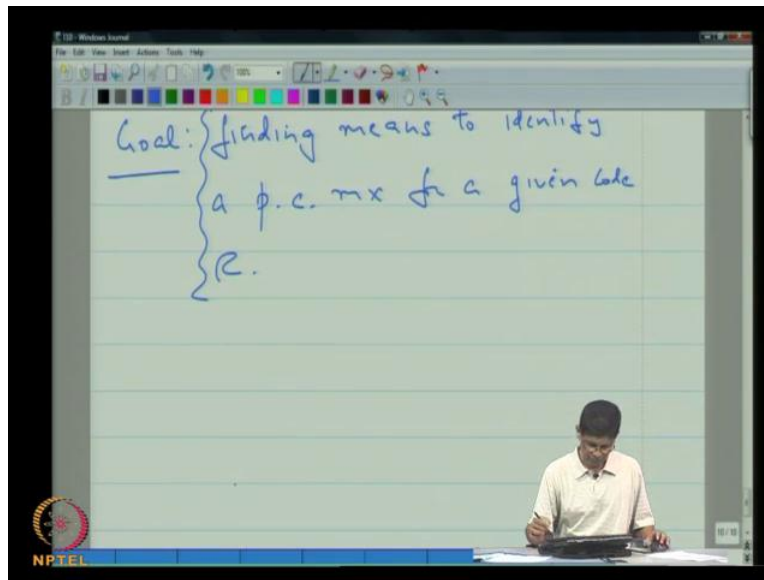 110 - Windows Journal
File Edit View Insert Actions Tools Help
100%
B I
Goal: finding means to identify
a p.c. mx for a given code
C.
10 / 10
NPTEL